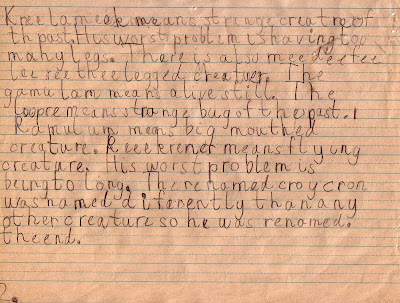 Kreelameak means strange creatre of
th past. His worst problem is having too
mahy legs. There is also meedeetee
lee ree three legged creatuer. The
gamulam means alive still. The
loopre means strange bug of the past. 1
Ramulum means big mouthed
creature. Reeekrener means flying
creature. His worst problem is
being to long. The renamed croycron
was named diferently than any
other creature so he was renamed.
the end.
2.